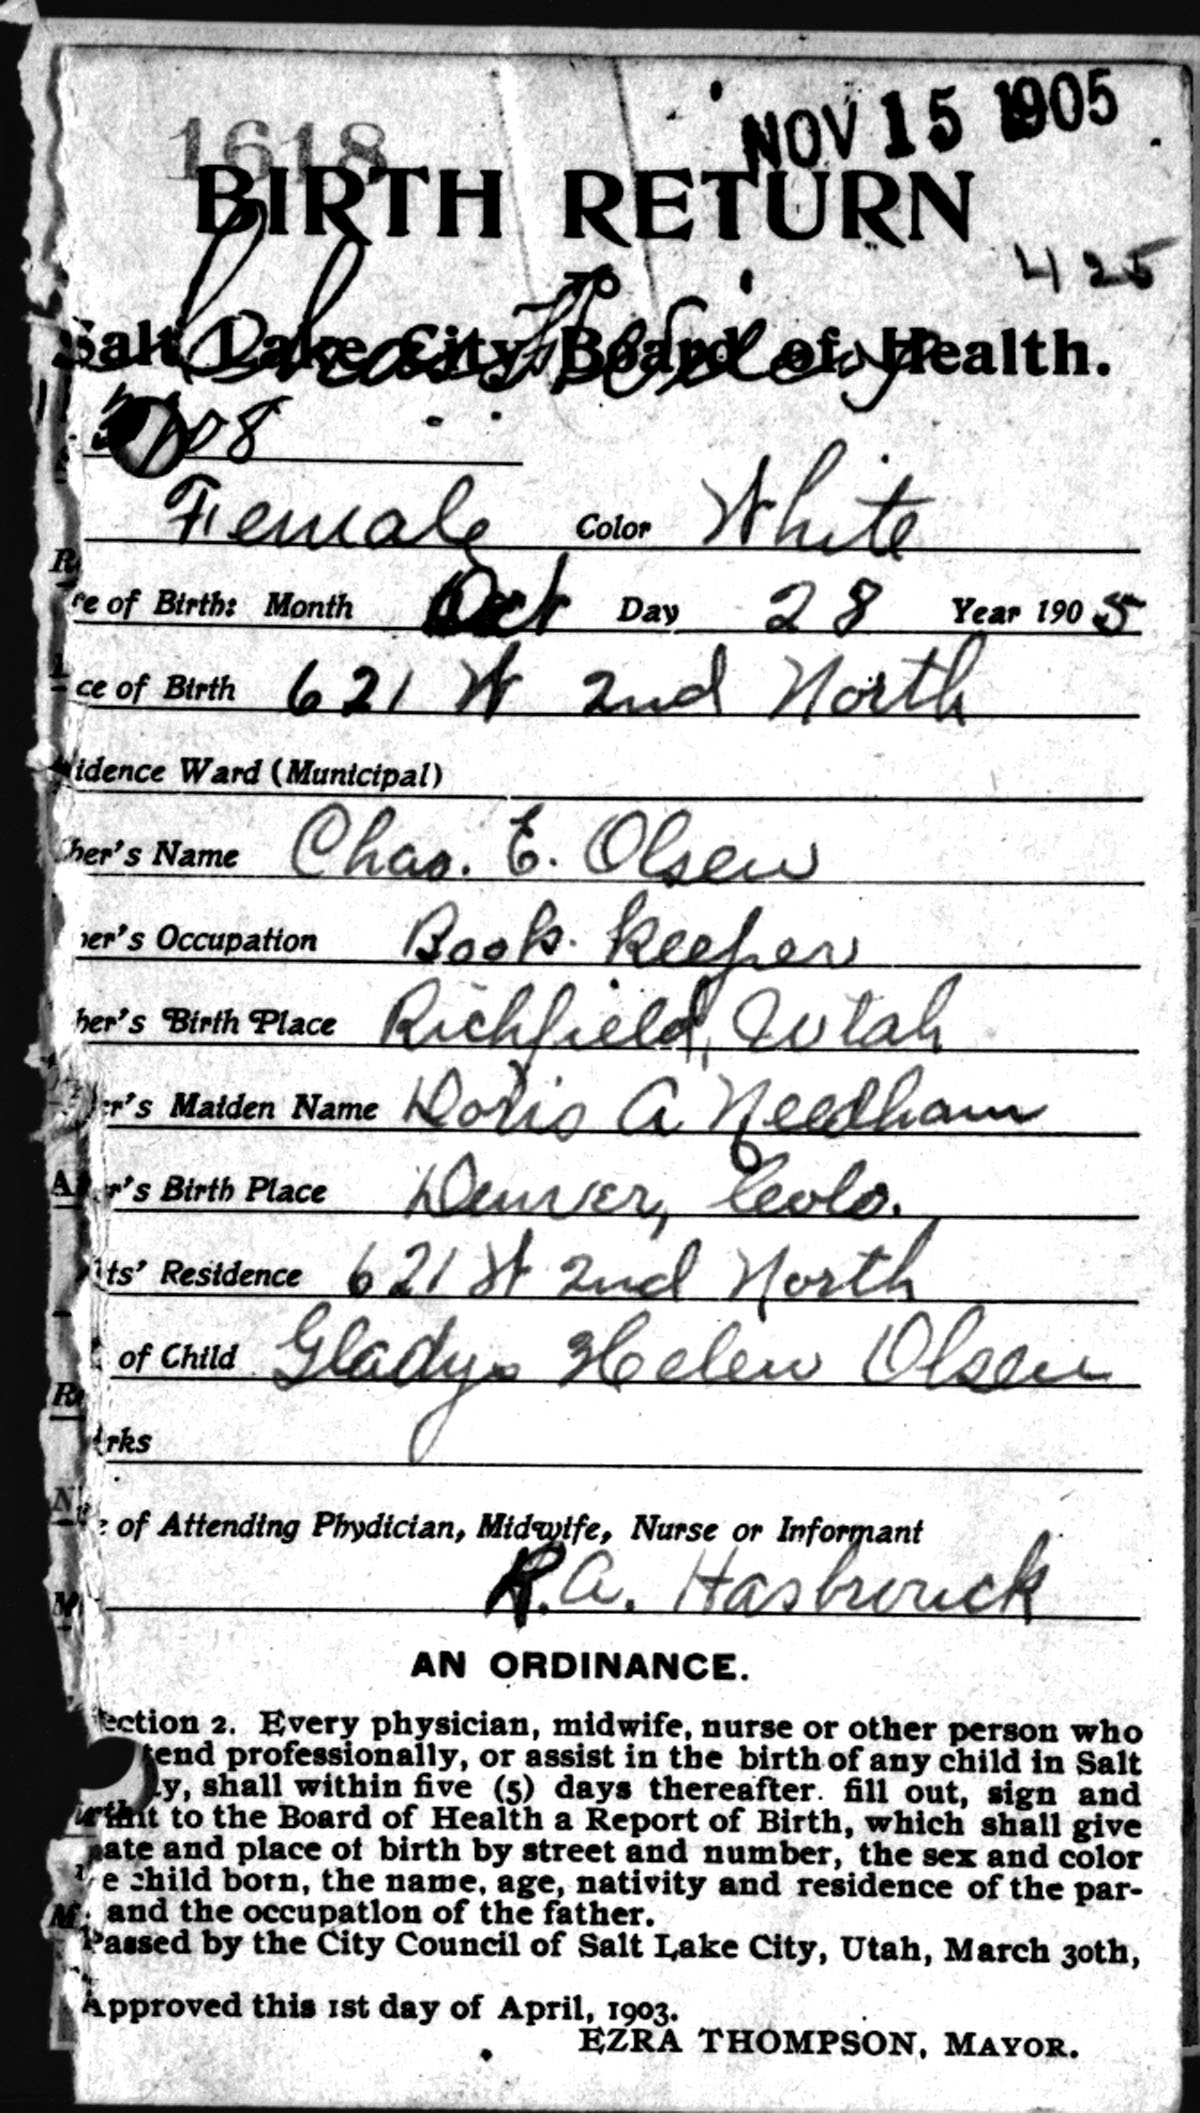 1618
NOV 15 1905
BIRTH RETURN
425
TO
Salt Lake City Board of Health.
Chas
08
Female Color White
re of Birth: Month Oct Day 28 Year 190 5
ce of Birth 621 W 2nd North
idence Ward (Municipal)
her's Name Chas. E. Olsen
er's Occupation Book keeper
her's Birth Place Richfield, Utah
er's Maiden Name Doris A Needham
r's Birth Place Denver, Colo.
ts' Residence 621 W 2nd North
of Child Gladys Helen Olsen
rks
of Attending Phydician, Midwife, Nurse or Informant
R.A. Hasbrouck
AN ORDINANCE.
ection 2. Every physician, midwife, nurse or other person who
tend professionally, or assist in the birth of any child in Salt
y, shall within five (5) days thereafter. fill out, sign and
it to the Board of Health a Report of Birth, which shall give
ate and place of birth by street and number, the sex and color
e child born, the name, age, nativity and residence of the par-
and the occupation of the father.
Passed by the City Council of Salt Lake City, Utah, March 30th,
Approved this 1st day of April, 1903.
EZRA THOMPSON, MAYOR.